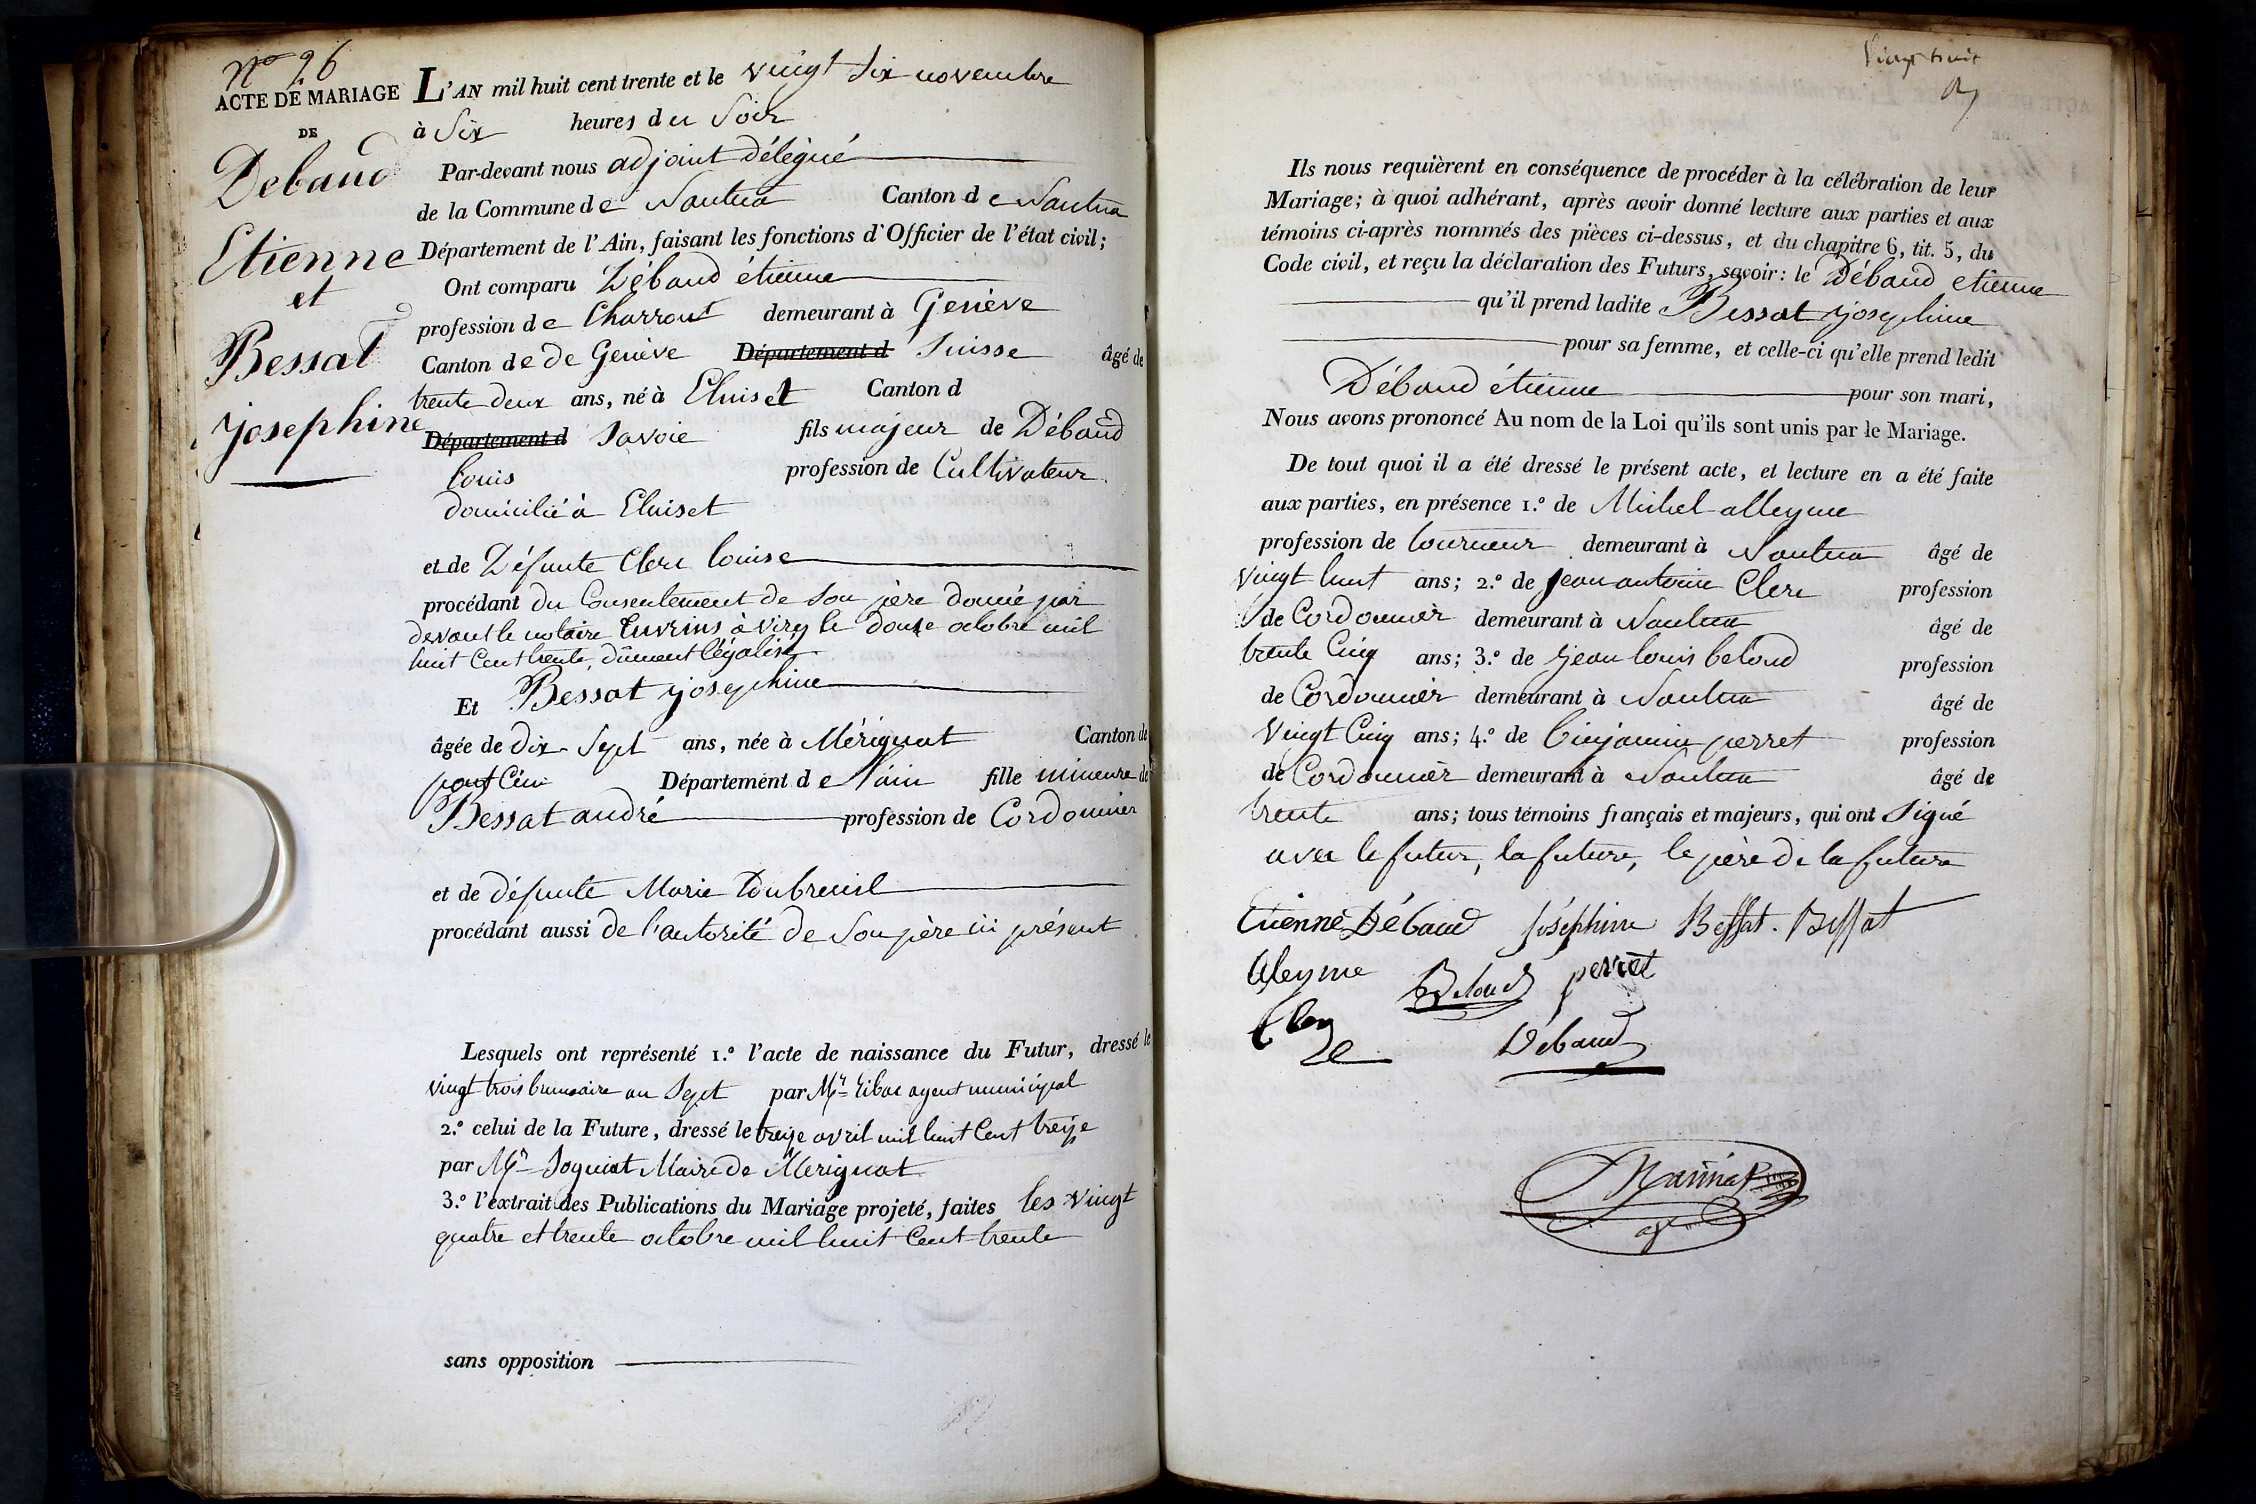 N.o 26
ACTE DE MARIAGE
DE
Debaud
Etienne
et
Bessat
josephine
L'AN mil huit cent trente et le vingt six novembre
à Six heures du Soir
Par-devant nous adjoint délégué
de la Commune de Nantua Canton de Nantua
Département de l'Ain, faisant les fonctions d'Officier de l'état civil;
Ont comparu Débaud étienne
profession de Charron demeurant à Genève
Canton de de Genève Département d Suisse âgé de
trente deux ans, né à Eluiset Canton d
Département d Savoie fils majeur de Débaud
louis profession de Cultivateur
domicilié à Eluiset
et de Défunte Clerc louise
procédant du Consentement de Son père donné par
devant le notaire à viry le douze octobre mil
huit Cent trente, dûment légalisé
Et Bessat josephine
âgée de dix-Sept ans, née à Mérignat Canton de
pont d'ain Département de l'ain fille mineure de
Bessat andré profession de Cordonnier
et de défunte Marie Doubreuil
procédant aussi de l'autorité de Son père ici présent
Lesquels ont représenté 1.o l'acte de naissance du Futur, dressé le
vingt trois brumaire an Sept par Mr. agent municipal
2.o celui de la Future, dressé le treize avril mil huit Cent treize
par Mr. Maire de Merignat
3.o l'extrait des Publications du Mariage projeté, faites les vingt
quatre et trente octobre mil huit Cent trente
sans opposition
Vingt huit
Ils nous requièrent en conséquence de procéder à la célébration de leur
Mariage; à quoi adhérant, après avoir donné lecture aux parties et aux
témoins ci-après nommés des pièces ci-dessus, et du chapitre 6, tit. 5, du
Code civil, et reçu la déclaration des Futurs, savoir: le Débaud etienne
qu'il prend ladite Bessat josephine
pour sa femme, et celle-ci qu'elle prend ledit
Débaud étienne pour son mari,
Nous avons prononcé Au nom de la Loi qu'ils sont unis par le Mariage.
De tout quoi il a été dressé le présent acte, et lecture en a été faite
aux parties, en présence 1.o de Michel alleyme
profession de tourneur demeurant à Nantua âgé de
vingt huit ans; 2.o de jean antoine Clerc profession
de Cordonnier demeurant à Nantua âgé de
trente Cinq ans; 3.o de jean louis beloud profession
de Cordonnier demeurant à Nantua âgé de
vingt Cinq ans; 4.o de binjamin perret profession
de Cordonnier demeurant à Nantua âgé de
trente ans; tous témoins français et majeurs, qui ont Signé
avec le futur, la future, le père de la future
Etienne Débaud joséphine Bessat. Bessat
Aleyme Beloud perret
Clerc Débaud